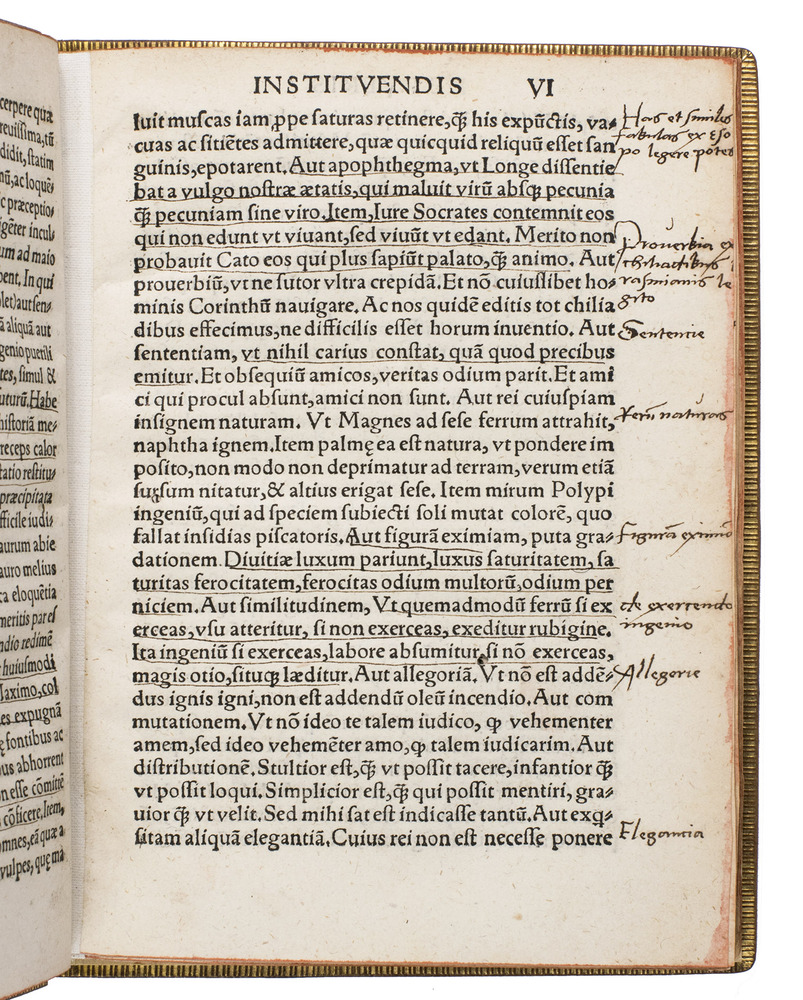 cerpere quæ
reuissima,tū
didit,statim
nū,ac loquē⸗
c præceptio⸗
igēter incul⸗
um ad maio
bent.In qui
let)aut sen⸗
ā aliquā aut
genio puerili
tes,simul &
uturū.Habe
historiā me⸗
receps calor
tatio restitu⸗
præcipitata
fficile iudi⸗
aurum abie
auro melius
ca eloquētia
meritis par es
ndio redimē
huiusmodi
laximo,col
es expugnā
ę fontibus ac
ous abhorrent
n esse cōmittē
cōficere.Item,
mnes,eā quæ a
vulpes,quę ma
INSTITVENDIS VI
luit muſcas iam ꝓpe ſaturas retinere,ꝗ̃ his expūctis, va⸗
cuas ac ſitiētes admittere, quæ quicquid reliquū eſſet ſan
guinis,epotarent. Aut apophthegma,vt Longe diſſentie
bat a vulgo noſtræ ætatis,qui maluit virū abſqꝫ pecunia
ꝗ̃ pecuniam ſine viro.Item,Iure Socrates contemnit eos
qui non edunt vt viuant,ſed viuūt vt edant. Merito non
probauit Cato eos qui plus ſapiūt palato,ꝗ̃ animo. Aut
prouerbiū,vt ne ſutor vltra crepidā.Et nō cuiuſlibet ho⸗
minis Corinthū nauigare. Ac nos quidē editis tot chilia
dibus effecimus,ne difficilis eſſet horum inuentio. Aut
ſententiam, vt nihil carius conſtat, quā quod precibus
emitur.Et obſequiū amicos,veritas odium parit.Et ami
ci qui procul abſunt,amici non ſunt. Aut rei cuiuſpiam
inſignem naturam. Vt Magnes ad ſeſe ferrum attrahit,
naphtha ignem.Item palmę ea eſt natura, vt pondere im
poſito,non modo non deprimatur ad terram,verum etiā
ſurſum nitatur,& altius erigat ſeſe. Item mirum Polypi
ingeniū,qui ad ſpeciem ſubiecti ſoli mutat colorē, quo
fallat inſidias piſcatoris.Aut figurā eximiam, puta gra⸗
dationem.Diuitiæ luxum pariunt,luxus ſaturitatem,ſa
turitas ferocitatem,ferocitas odium multorū,odium per
niciem.Aut ſimilitudinem, Vt quemadmodū ferrū ſi ex
erceas,vſu atteritur, ſi non exerceas, exeditur rubigine.
Ita ingeniū ſi exerceas,labore abſumitur,ſi nō exerceas,
magis otio,ſituqꝫ læditur.Aut allegoriā.Vt nō eſt addē⸗
dus ignis igni,non eſt addendū oleū incendio.Aut com
mutationem.Vt nō ideo te talem iudico, ꝙ vehementer
amem,ſed ideo vehemēter amo,ꝙ talem iudicarim.Aut
diſtributionē.Stultior eſt,ꝗ̃ vt poſſit tacere,infantior ꝗ̃
vt poſſit loqui.Simplicior eſt,ꝗ̃ qui poſſit mentiri, gra⸗
uior ꝗ̃ vt velit.Sed mihi ſat eſt indicaſſe tantū.Aut exqͥ
ſitam aliquā elegantiā.Cuius rei non eſt neceſſe ponere
Has et similes
fabulas ex Eso
po legere potes
Prouerbia ex
chiliadibus
rasmianis le
gito
Sententie
Rerū naturas
Figurā eximiā
de exercendo
ingenio
Allegorie
Elegantia